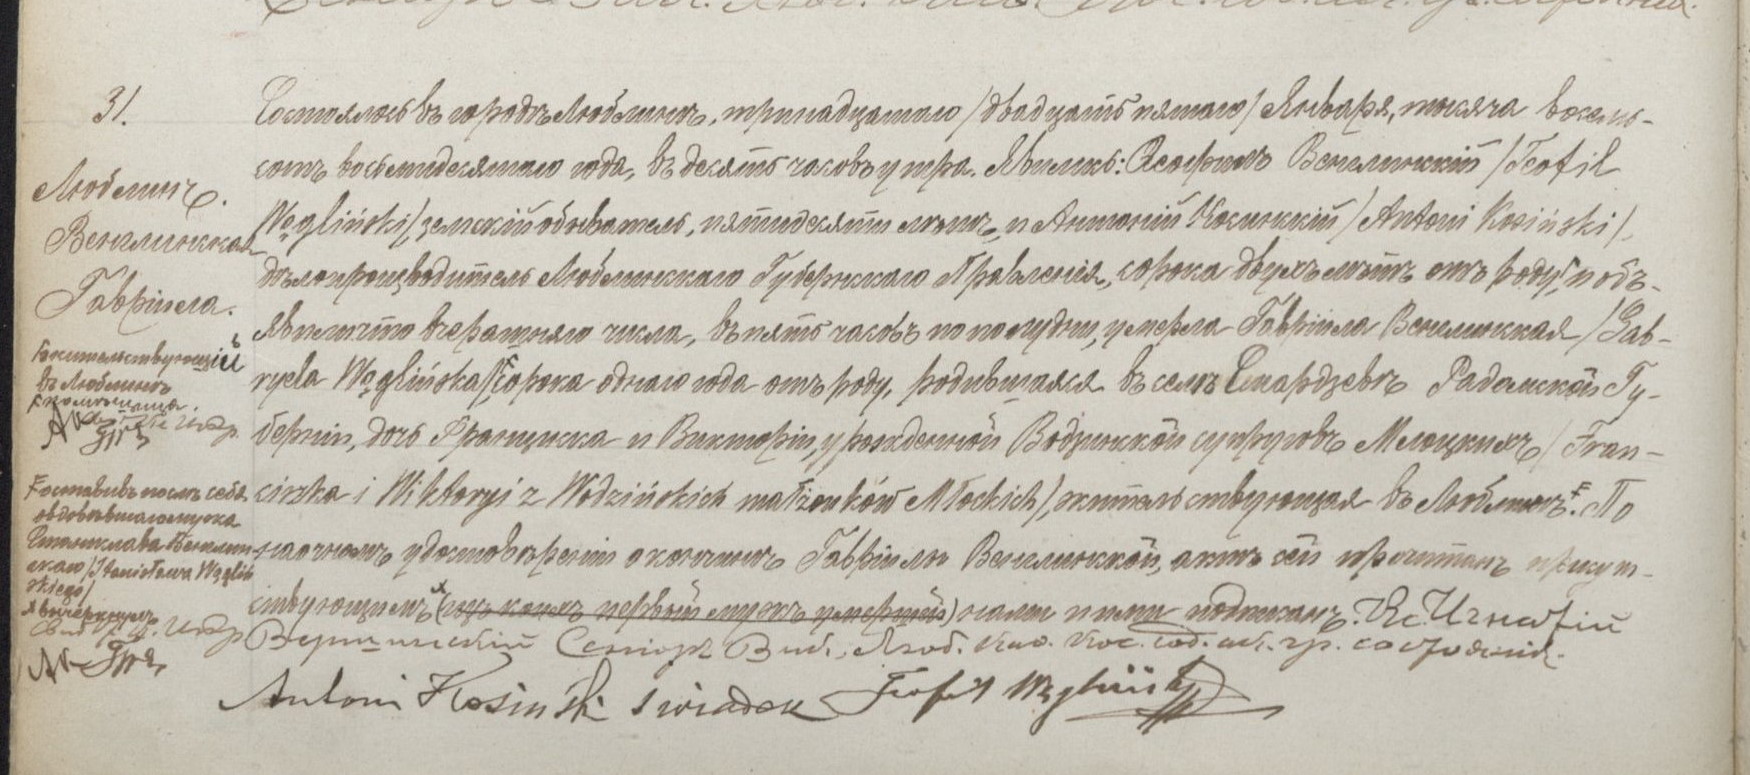 31.
Люблинъ.
Венглинская
Габріела.
жительствующій
въ Люблинѣ
оставивъ послѣ себя
овдовѣвшаго мужа
Станислава Венглин-
скаго /Stanisława Węgliń-
skiego/
Состоялось въ городѣ Люблинѣ, тринадцатаго /двадцать пятаго/ Января, тысяча восемь-
сотъ восьмидесятаго года, въ десять часовъ утра. Явились: Теофилъ Венглинскій /Teofil
Węgliński/, земскій обыватель, пятидесяти лѣтъ, и Антоній Косинскій /Antoni Kosiński/,
дѣлопроизводитель Люблинскаго Губернскаго Правленія, сорока двухъ лѣтъ отъ роду, и объ-
явили что вчерашняго числа, въ пять часовъ по полудни, умерла Габріела Венглинская /Gab-
ryela Węglińska/ сорока одного года отъ роду, родившаяся въ селѣ Смардзевѣ Радомской Гу-
берніи, дочь Францишка и Викторіи, урожденной Водзинской супруговъ Млоцкихъ /Fran-
ciszka i Wiktoryi z Wodzińskich małżonków Młockich/, жительствующая въ Люблинѣ. По
наочномъ удостовѣреніи о кончинѣ Габріелы Венглинской, актъ сей прочитанъ присут-
ствующимъ (изъ коихъ первый мужъ умершей) нами и ими подписанъ. Кс. Игнатій
Сеніоръ Вик. Люб. Каѳ. Кос. сод. ак. гр. состоянія.
Antoni Kosiński świadek Teofil Węgliński